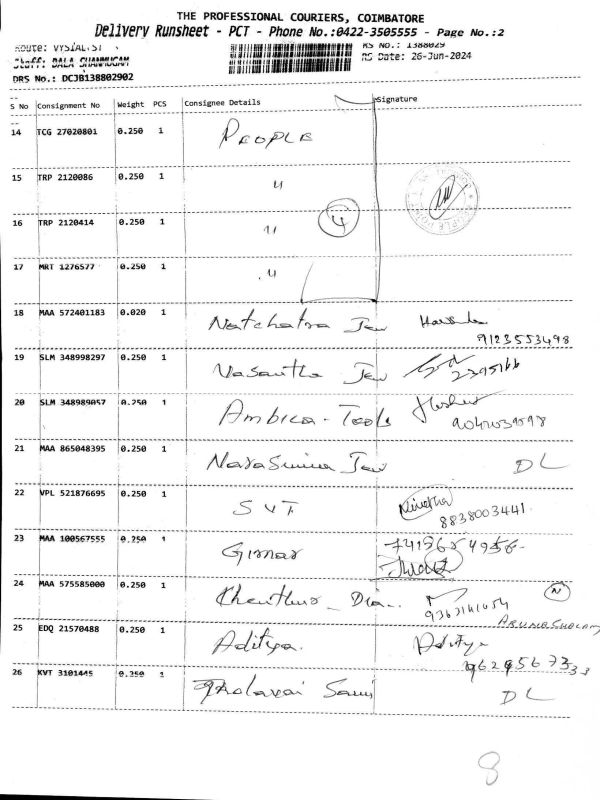 THE PROFESSIONAL COURIERS, COIMBATORE
Delivery Runsheet - PCT - Phone No.:0422-3505555 - Page No.:2
Route: VYSIAL.ST RS No.: 1388029
Staff: BALA SHANMUGAM RS Date: 26-Jun-2024
DRS No.: DCJB138802902
S No Consignment No Weight PCS Consignee Details Signature
14 TCG 27020801 0.250 1 PEOPLE
15 TRP 2120086 0.250 1 "
16 TRP 2120414 0.250 1 " 4
17 MRT 1276577 0.250 1 "
18 MAA 572401183 0.020 1 Natchatra Jew
9123553498
19 SLM 348998297 0.250 1 Vasantha Jew
2395166
20 SLM 348989057 0.250 1 Ambica - Tools
21 MAA 865048395 0.250 1 Narasimma Jew DL
22 VPL 521876695 0.250 1 SVT Nivetha
8838003441
23 MAA 100567555 0.250 1 Girnar
24 MAA 575585000 0.250 1 Chenthur - Dia.. N
ARUNASHALAM
25 EDQ 21570488 0.250 1 Aditya. Aditya
26 KVT 3101445 0.250 1 Thalavai Sami DL
8